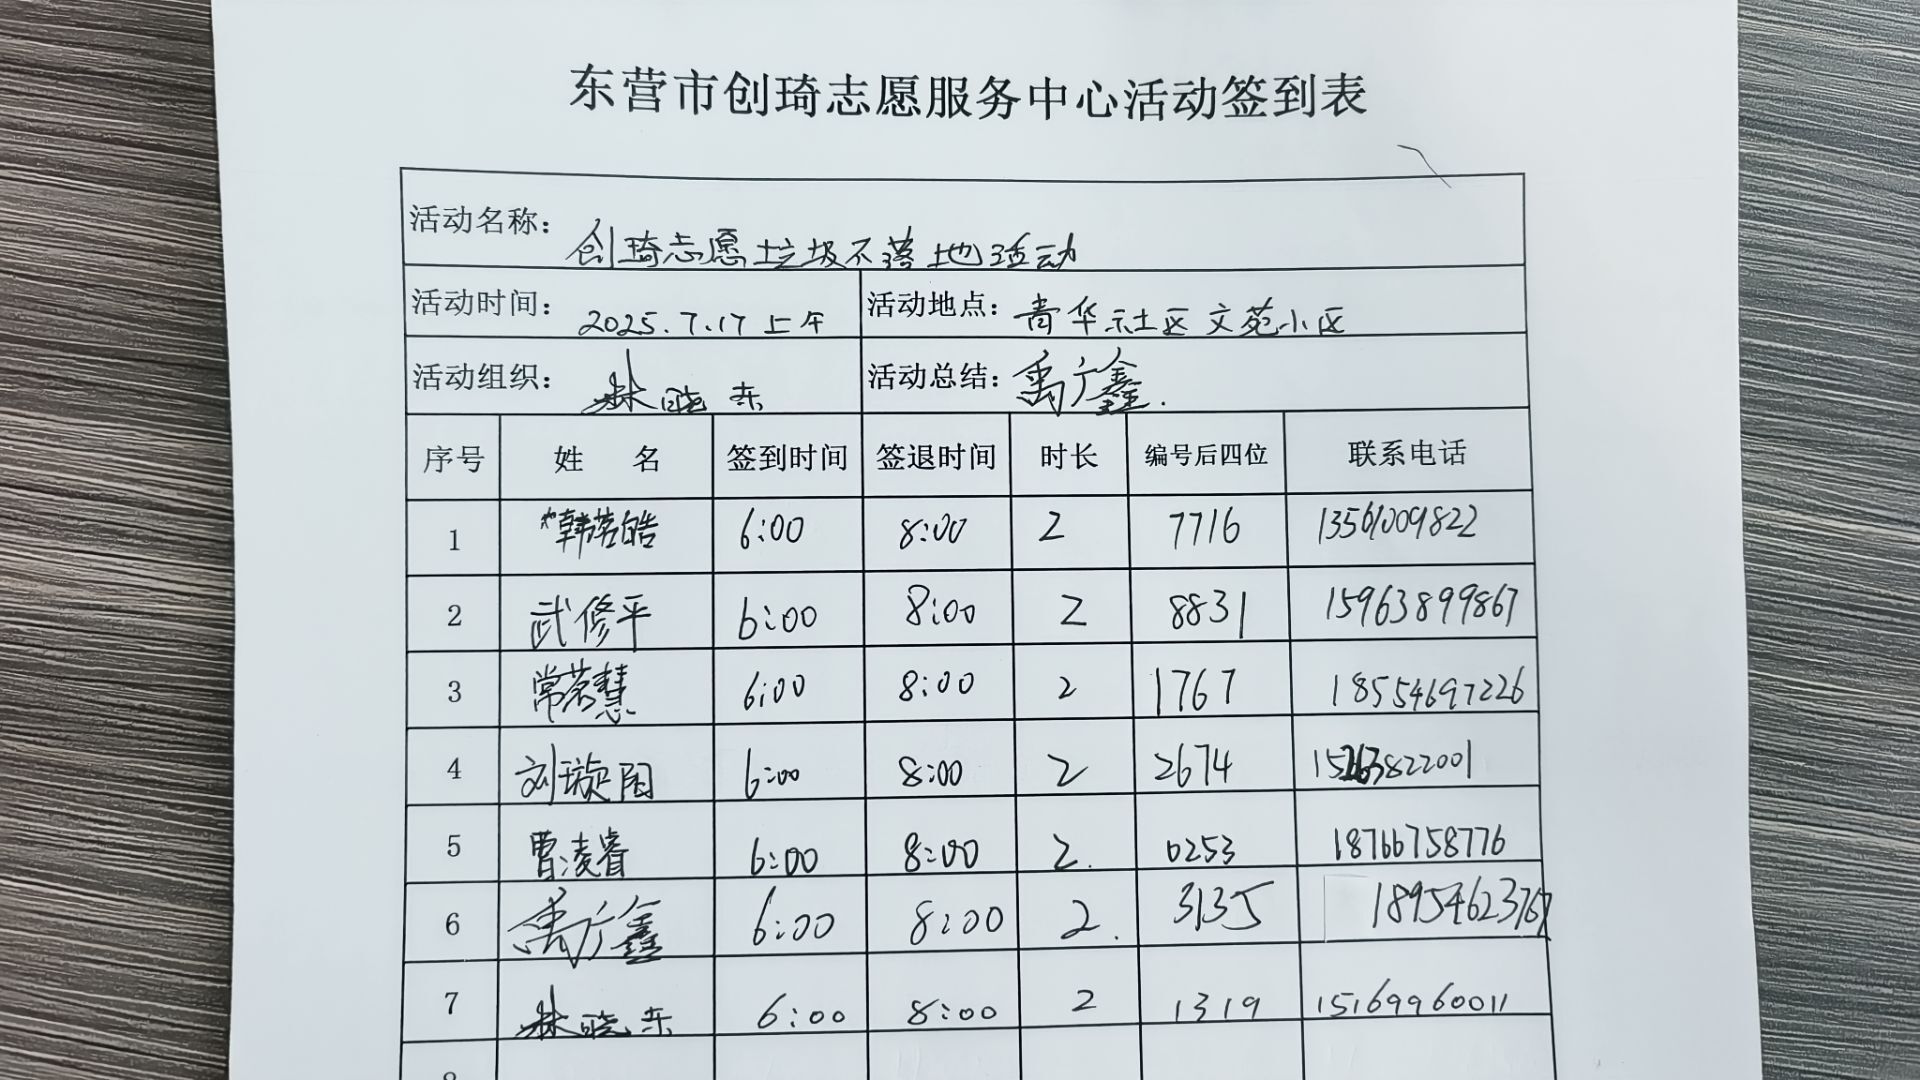 东营市创琦志愿服务中心活动签到表
活动名称： 创琦志愿垃圾不落地活动
活动时间： 2025.7.17上午 活动地点： 青华社区文苑小区
活动组织： 林晓东 活动总结： 禹广鑫.
序号 姓 名 签到时间 签退时间 时长 编号后四位 联系电话
1 韩茗皓 6:00 8:00 2 7716 13561009822
2 武修平 6:00 8:00 2 8831 15963899867
3 常茗慧 6:00 8:00 2 1767 18554697226
4 刘璇 6:00 8:00 2 2674
5 曹凌睿 6:00 8:00 2. 0253 18766758776
6 禹广鑫 6:00 8:00 2. 3135 18954623767
7 林晓东 6:00 8:00 2 1319 15169960011